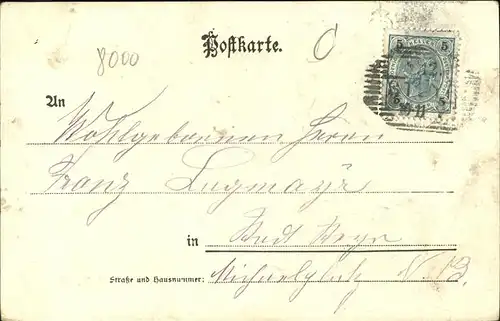 8000
Postkarte.
C
5 5
5 5
An
Wohlgeborenen Herrn
Franz Lugmayr
in Bad
Straße und Hausnummer: Michaelplatz N 13.